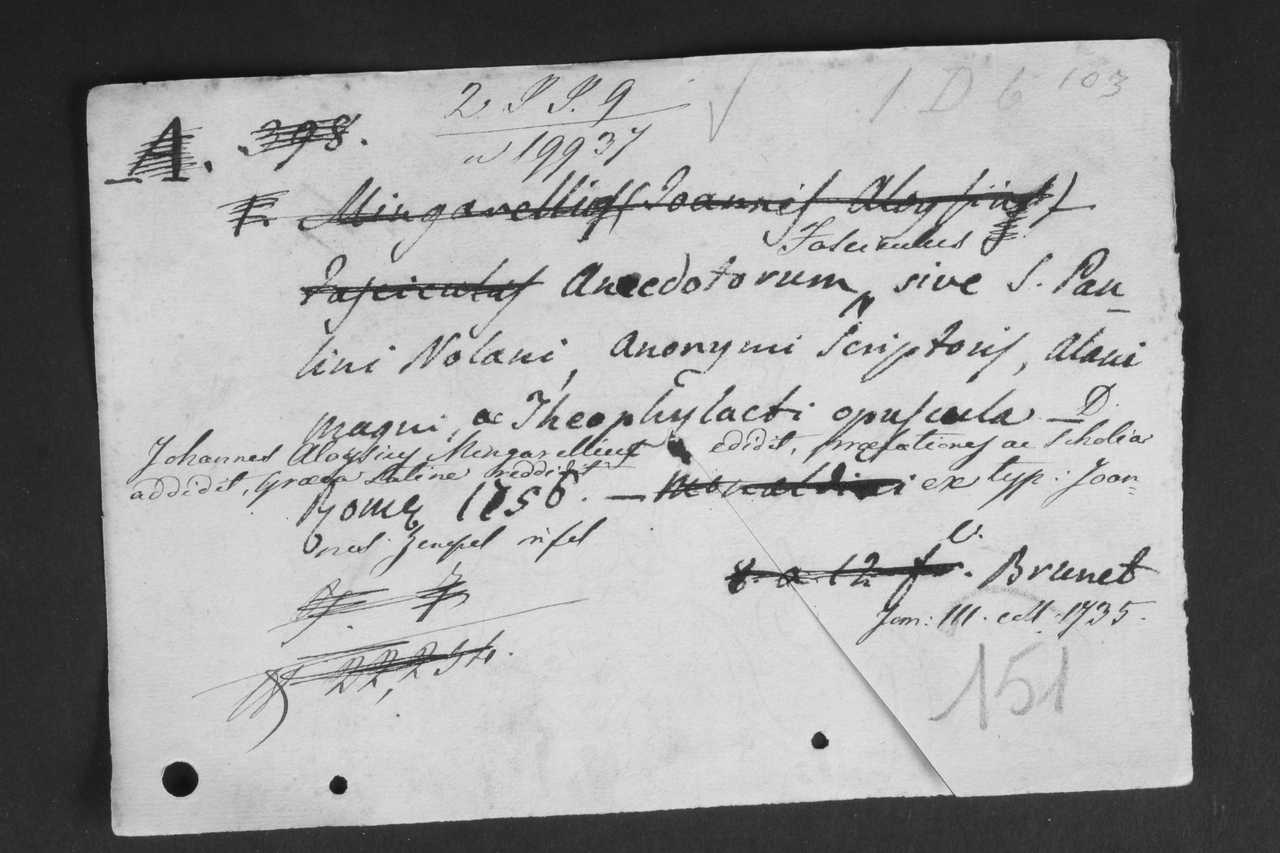 2 P P. 9
1 D 6 103
A. 398.
n 19937
Mingarellius (Joannis Aloysius)
Fasciculus
Fasciculus Anecdotorum, sive S. Pau-
lini Nolani, Anonymi Scriptoris, Alani
magni, ac Theophylacti opuscula — D.
Johannes Aloysius Mingarellius edidit, præfationes ac Scholia
addidit, Græca Latine reddidit.
Romę 1756. — ex typ: Joan-
nes Zempel
8. a. 12 f. v. Brunet
Tom: III. coll. 1735.
22,254.
151